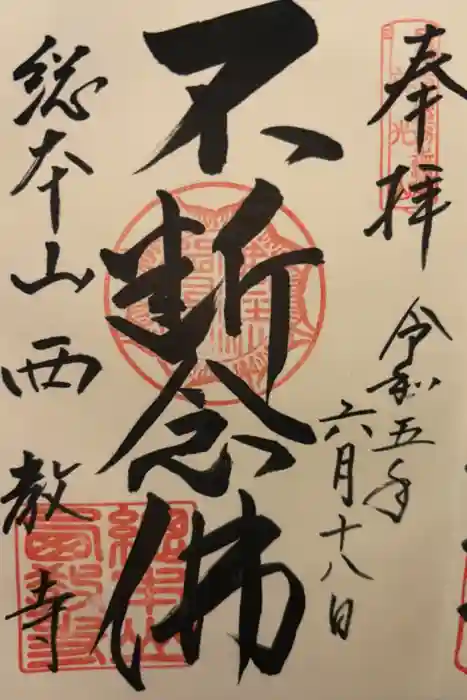 奉拝
令和五年
六月十八日
不断念佛
総本山西教寺